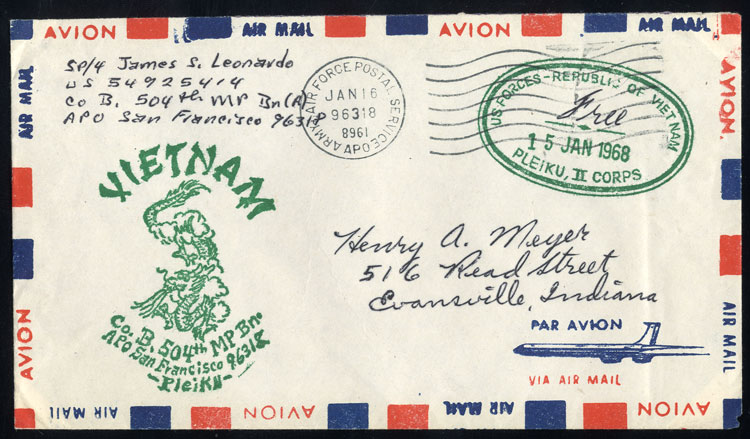 AVION
AIR MAIL
AVION
AIR MAIL
AVION
AIR MAIL
AVION
AIR MAIL
AVION
SP/4 James S. Leonardo
US 54925414
Co B. 504th MP Bn(A)
APO San Francisco 96318
ARMY-AIR FORCE POSTAL SERVICE
JAN 16
96318
8961
APO
US FORCES - REPUBLIC OF VIET NAM
Free
15 JAN 1968
PLEIKU, II CORPS
VIETNAM
Co. B. 504th MP Bn.
APO San Francisco 96318
-PleiKu-
Henry A. Meyer
516 Read Street
Evansville, Indiana
PAR AVION
VIA AIR MAIL
AIR MAIL
AVION
AIR MAIL
AVION
AIR MAIL
AVION
AIR MAIL
AVION